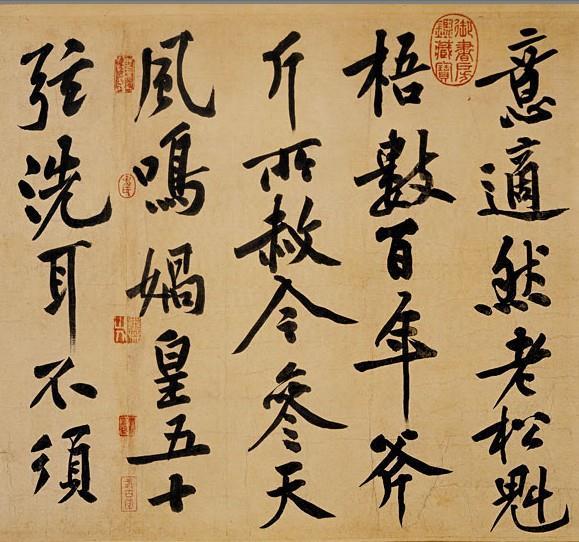 意適然老松魁
梧數百年斧
斤所赦今參天
風鳴媧皇五十
弦洗耳不須
御書房鑑藏寶